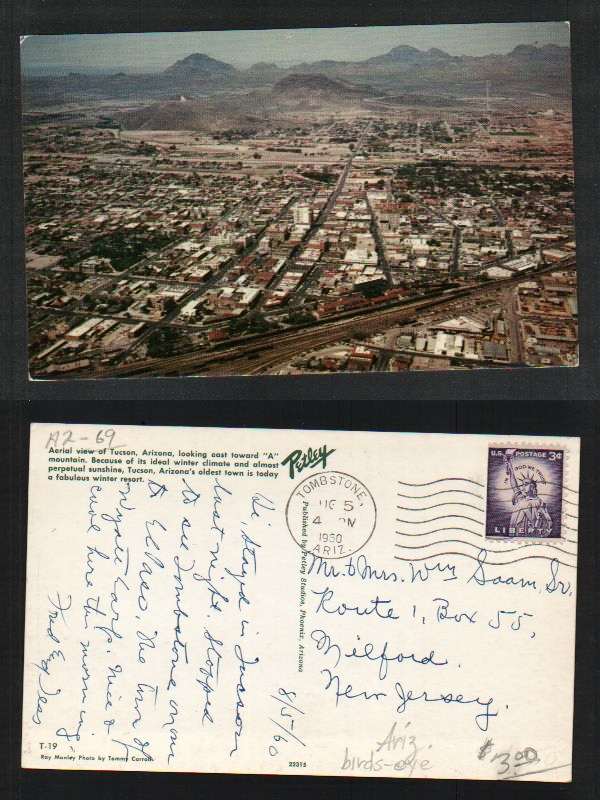 A2-69
Aerial view of Tucson, Arizona, looking east toward "A"
mountain. Because of its ideal winter climate and almost
perpetual sunshine, Tucson, Arizona's oldest town is today
a fabulous winter resort.
Petley
Published by Petley Studios, Phoenix, Arizona
8/5/60
Hi, Stayed in Tucson
last night. Stopped
to see Tombstone on way
to El Paso. The town of
Wyatt Earp. Nice &
cool here this morning.
Fred Ed
T-19
Ray Manley Photo by Tommy Carroll
22315
TOMBSTONE,
5
4 PM
1960
ARIZ.
U.S. POSTAGE 3¢
IN GOD WE TRUST
LIBERTY
Mr. & Mrs. Wm Saam, Sr.
Route 1, Box 55,
Milford,
New Jersey.
Ariz.
birds-eye
$3.00